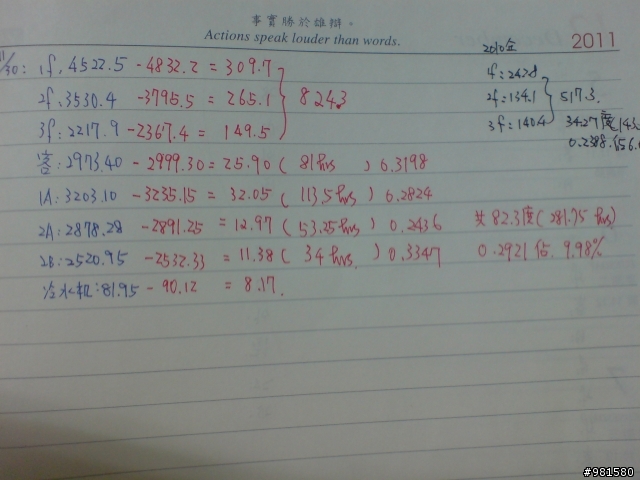 事實勝於雄辯。
Actions speak louder than words.
2011
2010年
11/30: 1f, 4522.5 -4832.2 = 309.7
2f. 3530.4 -3795.5 = 265.1
3f: 2217.9 -2367.4 = 149.5
824.3
1f: 242.8
2f: 134.1
3f: 140.4
517.3
34.27度 143.
0.2388. 佔6.
客: 2973.40 -2999.30 = 25.90 ( 81 hrs ) 0.3198
1A: 3203.10 -3235.15 = 32.05 ( 113.5 hrs ) 0.2824
2A: 2878.28 -2891.25 = 12.97 ( 53.25 hrs ) 0.2436
共 82.3度 ( 281.75 hrs )
2B: 2520.95 -2532.33 = 11.38 ( 34 hrs. ) 0.3347
0.2921 佔 9.98%
冷水机: 81.95 - 90.12 = 8.17.
#981580